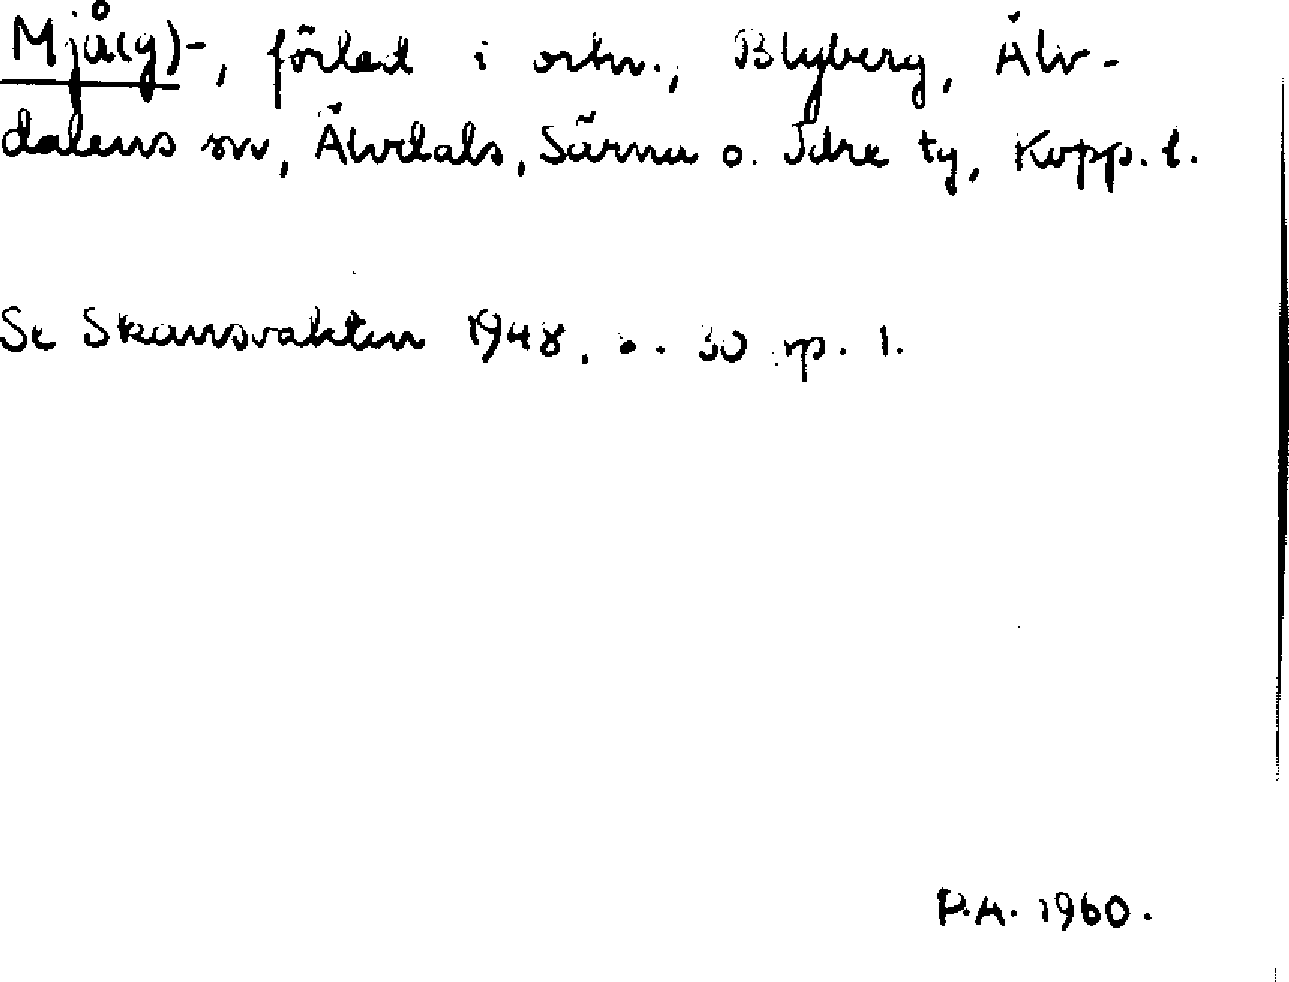 Mjå(g)-, förled i ortn., Blyberg, Älv-
dalens sn, Älvdals, Särna o. Idre tg, Kopp. l.
Se Skansvakten 1948, s. 30 sp. 1.
P.A. 1960.